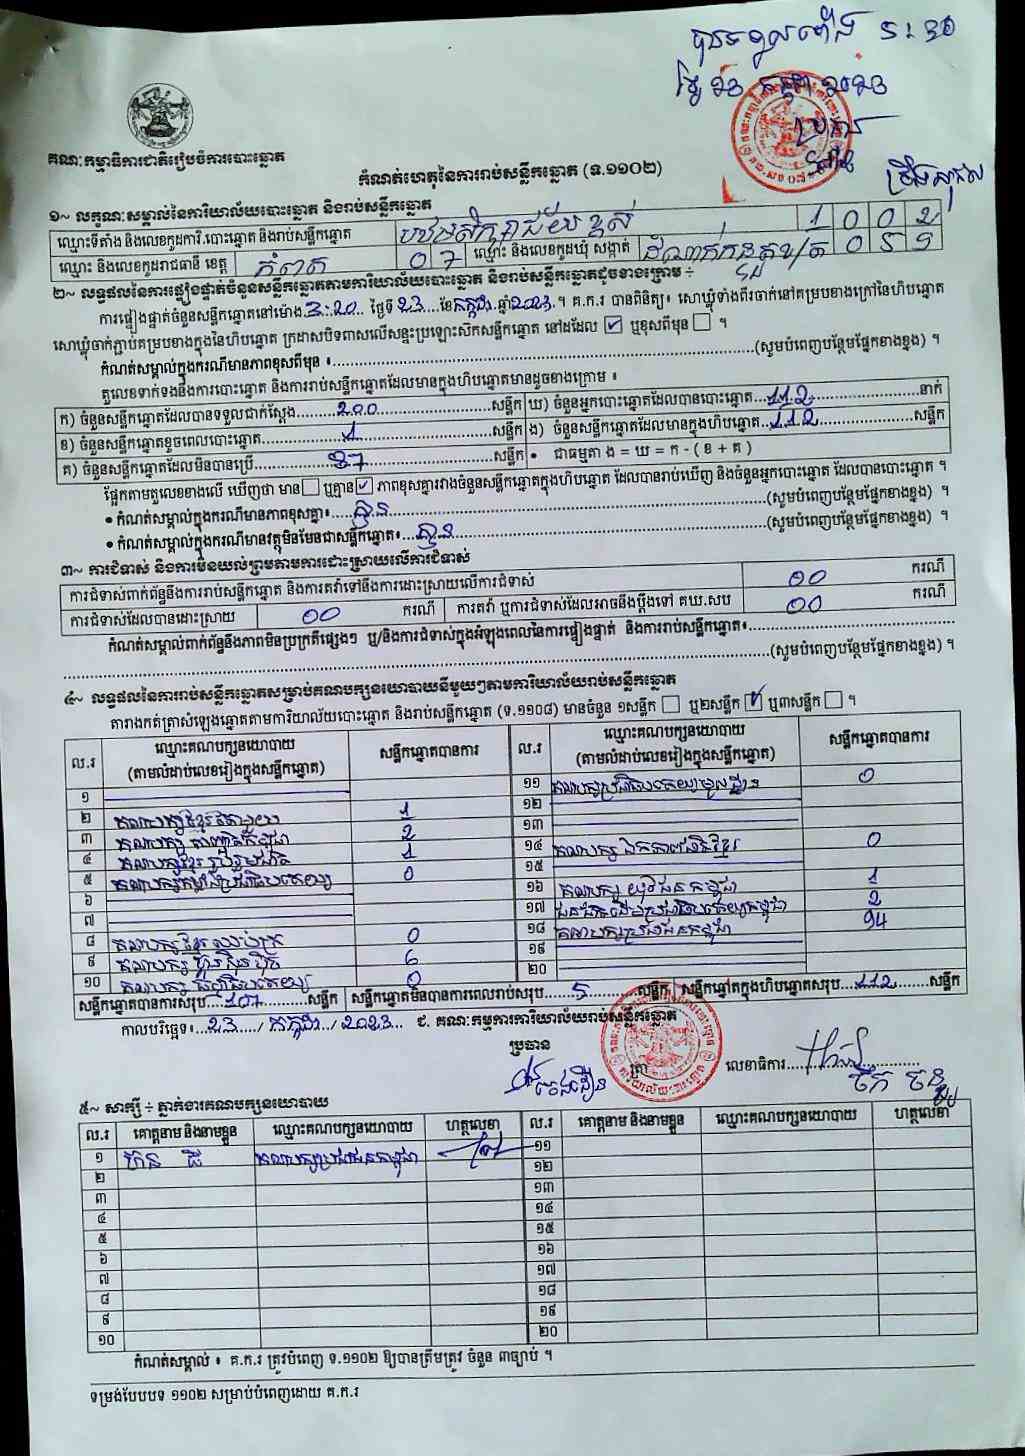 5:30
គណៈកម្មាធិការជាតិរៀបចំការបោះឆ្នោត
កំណត់ហេតុនៃការរាប់សន្លឹកឆ្នោត (ទ.១១០២)
១~ លក្ខណៈសម្គាល់នៃការិយាល័យបោះឆ្នោត និងរាប់សន្លឹកឆ្នោត
ឈ្មោះទីតាំង និងលេខកូដការិ.បោះឆ្នោត និងរាប់សន្លឹកឆ្នោត 1 0 0 2
ឈ្មោះ និងលេខកូដរាជធានី ខេត្ត កំពត 0 7 ឈ្មោះ និងលេខកូដឃុំ សង្កាត់ 0 5 9
២~ លទ្ធផលនៃការផ្ទៀងផ្ទាត់ចំនួនសន្លឹកឆ្នោតតាមការិយាល័យបោះឆ្នោត និងរាប់សន្លឹកឆ្នោតដូចខាងក្រោម ៖
ការផ្ទៀងផ្ទាត់ចំនួនសន្លឹកឆ្នោតនៅម៉ោង 3:20 ថ្ងៃទី 23 ខែ កក្កដា ឆ្នាំ 2023 ។ គ.ក.រ បានពិនិត្យ៖ សោឃ្លុំទាំងពីរចាក់នៅគម្របខាងក្រៅនៃហិបឆ្នោត
សោឃ្លុំចាក់ភ្ជាប់គម្របខាងក្នុងនៃហិបឆ្នោត ក្រដាសបិទពាសលើសន្ទះប្រឡោះសិកសន្លឹកឆ្នោត នៅដដែល ☑ ឬខុសពីមុន ☐ ។
កំណត់សម្គាល់ក្នុងករណីមានភាពខុសពីមុន ៖ (សូមបំពេញបន្ថែមផ្នែកខាងខ្នង) ។
តួលេខទាក់ទងនឹងការបោះឆ្នោត និងការរាប់សន្លឹកឆ្នោតដែលមានក្នុងហិបឆ្នោតមានដូចខាងក្រោម ៖
ក) ចំនួនសន្លឹកឆ្នោតដែលបានទទួលជាក់ស្តែង 200 សន្លឹក ឃ) ចំនួនអ្នកបោះឆ្នោតដែលបានបោះឆ្នោត 112 នាក់
ខ) ចំនួនសន្លឹកឆ្នោតខូចពេលបោះឆ្នោត 1 សន្លឹក ង) ចំនួនសន្លឹកឆ្នោតដែលមានក្នុងហិបឆ្នោត 112 សន្លឹក
គ) ចំនួនសន្លឹកឆ្នោតដែលមិនបានប្រើ 87 សន្លឹក • ជាធម្មតា ង = ឃ = ក - ( ខ + គ )
ផ្អែកតាមតួលេខខាងលើ ឃើញថា មាន ☐ ឬគ្មាន ☑ ភាពខុសគ្នារវាងចំនួនសន្លឹកឆ្នោតក្នុងហិបឆ្នោត ដែលបានរាប់ឃើញ និងចំនួនអ្នកបោះឆ្នោត ដែលបានបោះឆ្នោត ។
• កំណត់សម្គាល់ក្នុងករណីមានភាពខុសគ្នា៖ គ្មាន (សូមបំពេញបន្ថែមផ្នែកខាងខ្នង) ។
• កំណត់សម្គាល់ក្នុងករណីមានវត្ថុមិនមែនជាសន្លឹកឆ្នោត៖ គ្មាន (សូមបំពេញបន្ថែមផ្នែកខាងខ្នង) ។
៣~ ការជំទាស់ និងការមិនយល់ព្រមតាមការដោះស្រាយលើការជំទាស់
ការជំទាស់ពាក់ព័ន្ធនឹងការរាប់សន្លឹកឆ្នោត និងការតវ៉ាទៅនឹងការដោះស្រាយលើការជំទាស់ 00 ករណី
ការជំទាស់ដែលបានដោះស្រាយ 00 ករណី ការតវ៉ា ឬការជំទាស់ដែលអាចនឹងប្តឹងទៅ គឃ.សប 00 ករណី
កំណត់សម្គាល់ពាក់ព័ន្ធនឹងភាពមិនប្រក្រតីផ្សេងៗ ឬ/និងការជំទាស់ក្នុងអំឡុងពេលនៃការផ្ទៀងផ្ទាត់ និងការរាប់សន្លឹកឆ្នោត៖
(សូមបំពេញបន្ថែមផ្នែកខាងខ្នង) ។
៤~ លទ្ធផលនៃការរាប់សន្លឹកឆ្នោតសម្រាប់គណបក្សនយោបាយនីមួយៗតាមការិយាល័យរាប់សន្លឹកឆ្នោត
តារាងកត់ត្រាសំឡេងឆ្នោតតាមការិយាល័យបោះឆ្នោត និងរាប់សន្លឹកឆ្នោត (ទ.១១០៨) មានចំនួន ១សន្លឹក ☐ ឬ២សន្លឹក ☑ ឬ៣សន្លឹក ☐ ។
ល.រ ឈ្មោះគណបក្សនយោបាយ (តាមលំដាប់លេខរៀងក្នុងសន្លឹកឆ្នោត) សន្លឹកឆ្នោតបានការ ល.រ ឈ្មោះគណបក្សនយោបាយ (តាមលំដាប់លេខរៀងក្នុងសន្លឹកឆ្នោត) សន្លឹកឆ្នោតបានការ
១ ១១ 0
២ គណបក្សខ្មែរតែមួយ 1 ១២
៣ 2 ១៣
៤ គណបក្សខ្មែររួបរួមជាតិ 1 ១៤ គណបក្សឯកភាពជាតិខ្មែរ 0
៥ គណបក្សកម្លាំងប្រជាធិបតេយ្យ 0 ១៥
៦ ១៦ គណបក្សយុវជនកម្ពុជា 1
៧ ១៧ 2
៨ គណបក្សខ្មែរឈប់ក្រ 0 ១៨ គណបក្សប្រជាជនកម្ពុជា 94
៩ គណបក្សហ៊្វុនស៊ិនប៉ិច 6 ១៩
១០ គណបក្សធម្មាធិបតេយ្យ 0 ២០
សន្លឹកឆ្នោតបានការសរុប 107 សន្លឹក សន្លឹកឆ្នោតមិនបានការពេលរាប់សរុប 5 សន្លឹក សន្លឹកឆ្នោតក្នុងហិបឆ្នោតសរុប 112 សន្លឹក
កាលបរិច្ឆេទ៖ 23 / កក្កដា / 2023 ជ. គណៈកម្មការការិយាល័យរាប់សន្លឹកឆ្នោត
ប្រធាន
ត្រា លេខាធិការ
៥~ សាក្សី ៖ ភ្នាក់ងារគណបក្សនយោបាយ
ល.រ គោត្តនាម និងនាមខ្លួន ឈ្មោះគណបក្សនយោបាយ ហត្ថលេខា ល.រ គោត្តនាម និងនាមខ្លួន ឈ្មោះគណបក្សនយោបាយ ហត្ថលេខា
១ គណបក្សប្រជាជនកម្ពុជា ១១
២ ១២
៣ ១៣
៤ ១៤
៥ ១៥
៦ ១៦
៧ ១៧
៨ ១៨
៩ ១៩
១០ ២០
កំណត់សម្គាល់ ៖ គ.ក.រ ត្រូវបំពេញ ទ.១១០២ ឱ្យបានត្រឹមត្រូវ ចំនួន ៣ច្បាប់ ។
ទម្រង់បែបបទ ១១០២ សម្រាប់បំពេញដោយ គ.ក.រ